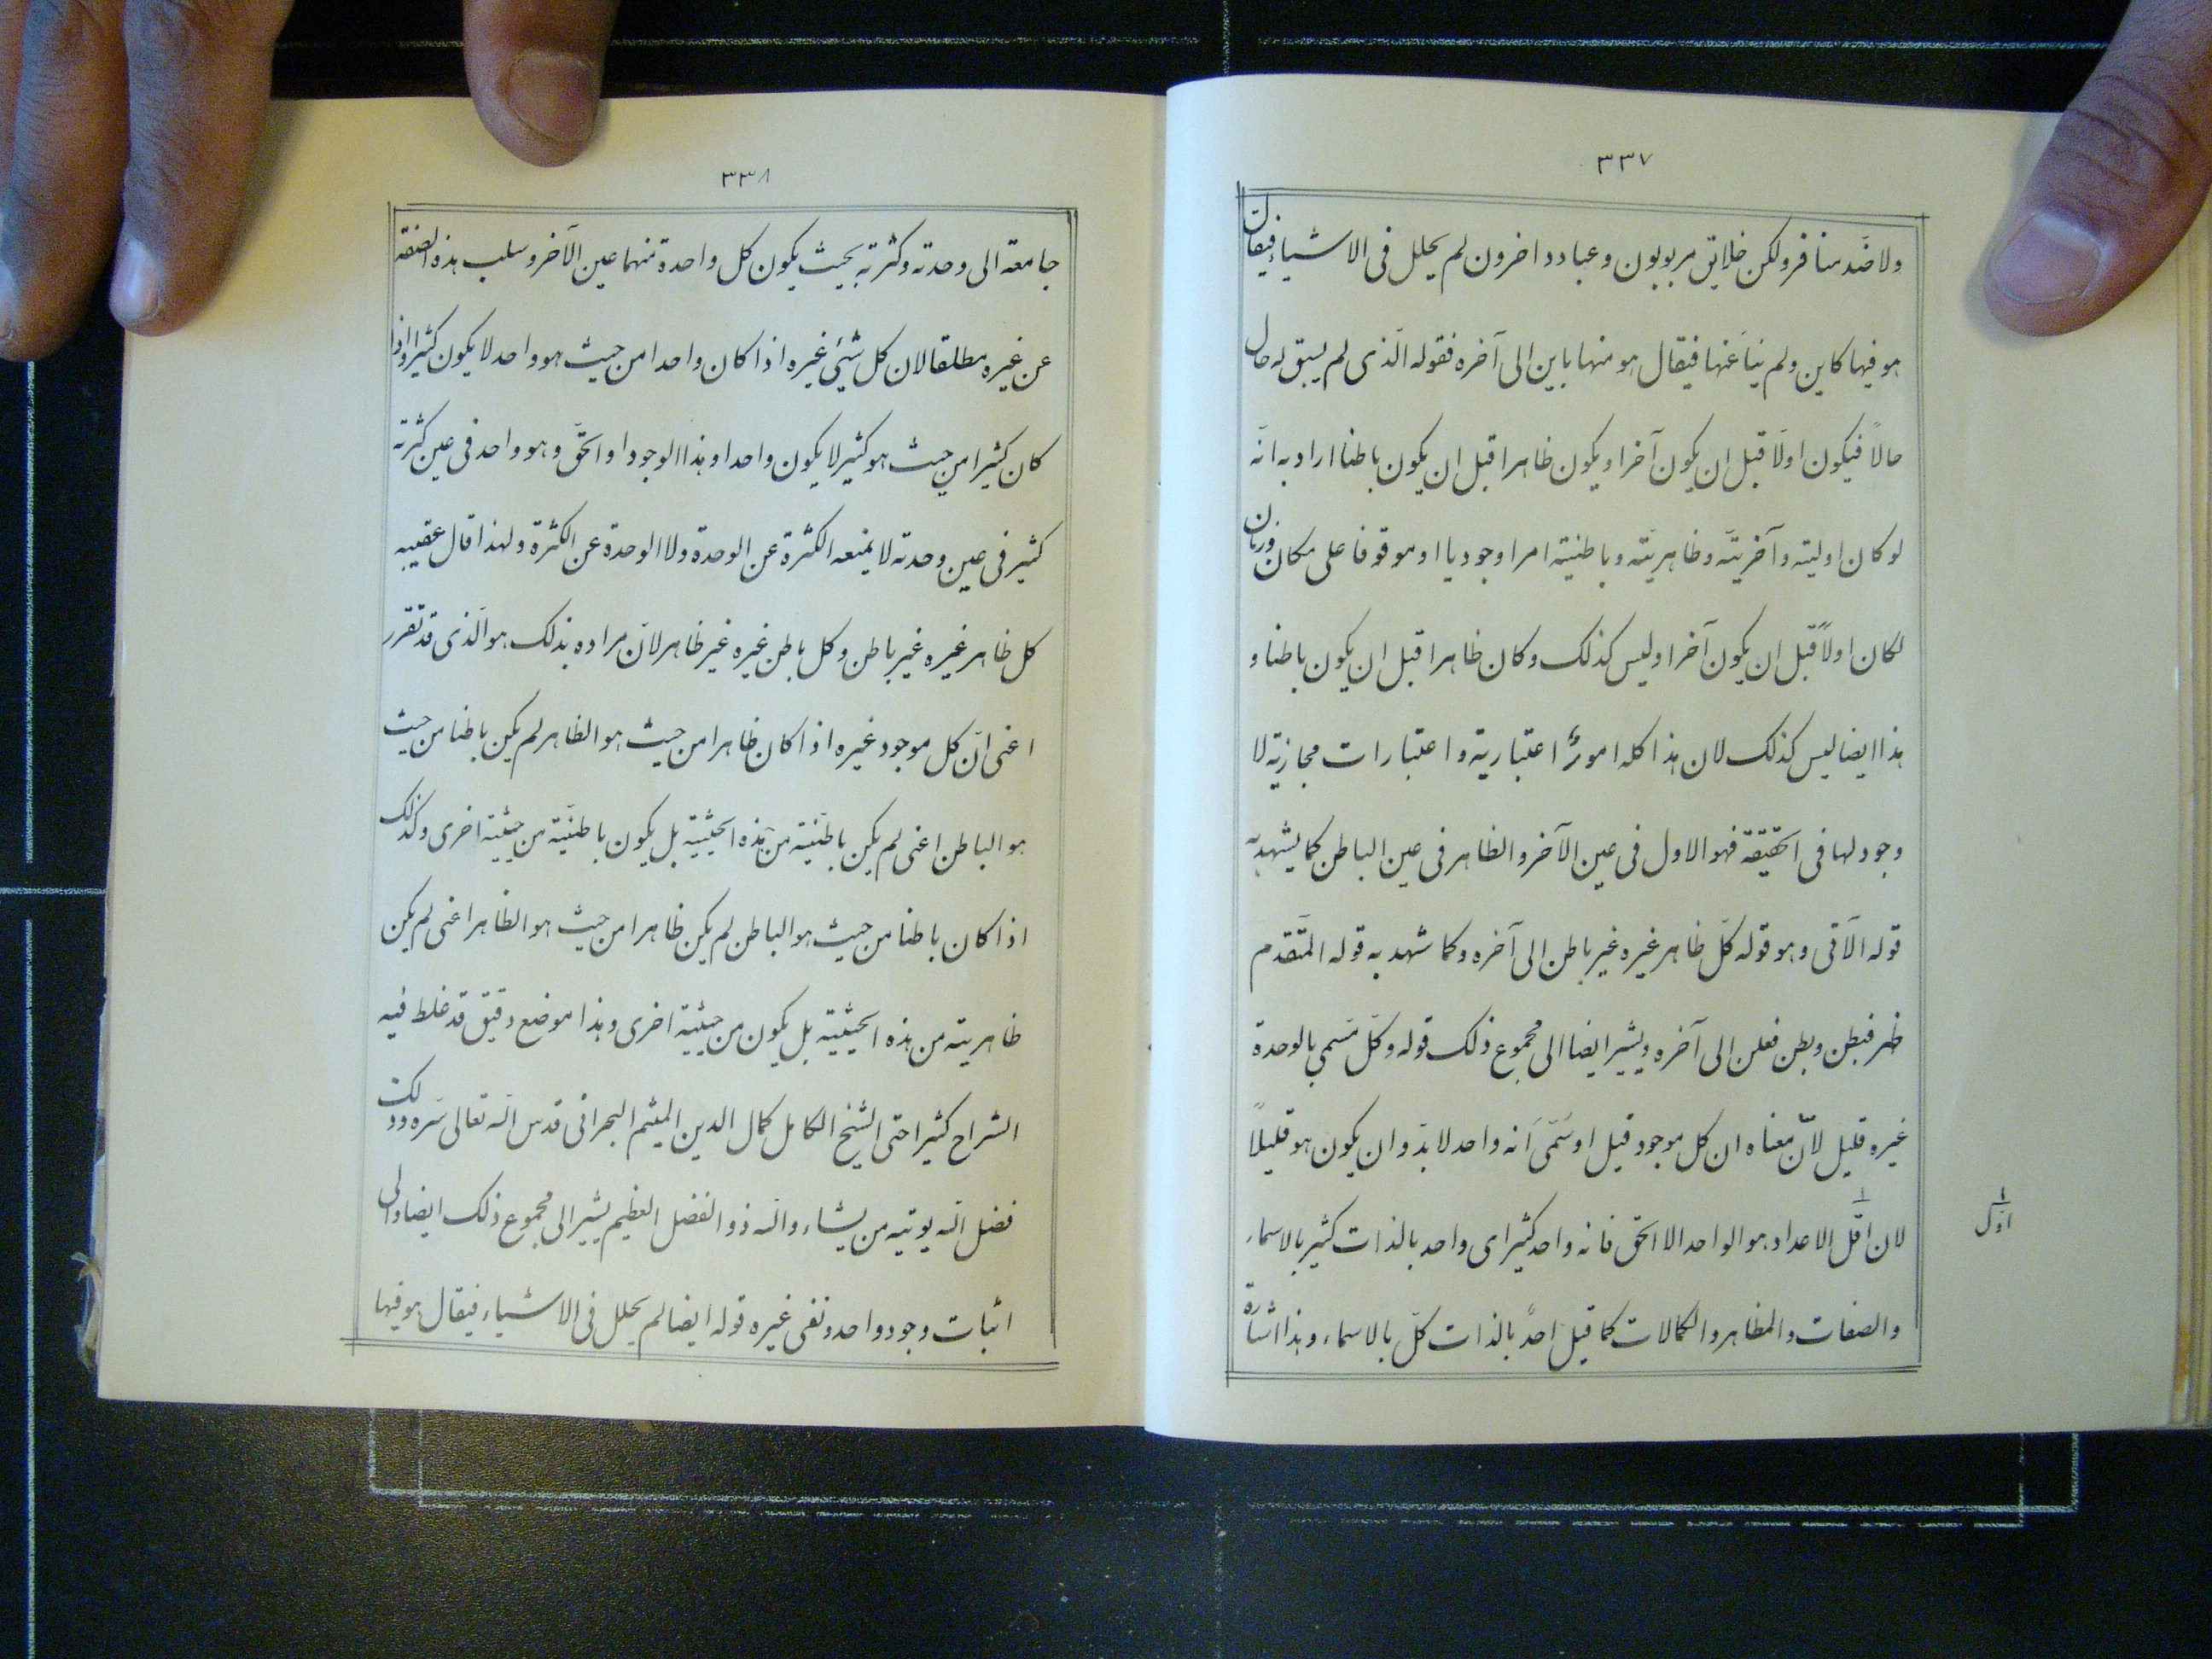 ٣٣٧
ولا ضد منافر ولكن خلايق مربوبون وعباد داخرون لم يحلل فى الاشياء فيقال
هو فيها كاين ولم ينأ عنها فيقال هو منها باين الى آخره فقوله الّذى لم يسبق له حال
حالاً فيكون اولّا قبل ان يكون آخرا ويكون ظاهرا قبل ان يكون باطنا اراد به انّه
لو كان اوليته وآخريتّه وظاهريتّه وباطنيته امرا وجوديا او موقوفا على مكان وزمان
لكان اولاً قبل ان يكون آخرا وليس كذلك وكان ظاهرا قبل ان يكون باطنا و
هذا ايضا ليس كذلك لان هذا كله امورٌ اعتبارية واعتبارات مجازيّة لا
وجود لها فى الحقيقة فهو الاول فى عين الآخر والظاهر فى عين الباطن كما يشهد به
قوله الآتى وهو قوله كلّ ظاهر غيره غير باطن الى آخره وكما شهد به قوله المتّقدم
ظهر فبطن وبطن فعلن الى آخره ويشير ايضا الى مجموع ذلك قوله وكلّ مسّمى بالوحدة
غيره قليل لانّ معناه ان كل موجود قيل او سُمّى انّه واحد لا بدّ وان يكون هو قليلاً
لان اقلّ الاعداد هو الواحد الا الحق فانه واحد كثير اى واحد بالذات كثير بالاسماء
والصفات والمظاهر والكمالات كما قيل احدٌ بالذات كلّ بالاسماء وهذا اشارة
١
اوّل
٣٣٨
جامعة الى وحدته وكثرته بحيث يكون كل واحدة منهما عين الآخر وسلب هذه الصفة
عن غيره مطلقا لان كل شيئ غيره اذا كان واحدا من حيث هو واحد لا يكون كثيرا واذا
كان كثيرا من حيث هو كثير لا يكون واحدا وهذا الوجود او الحقّ وهو واحد فى عين كثرته
كثير فى عين وحدته لا يمنعه الكثرة عن الوحدة ولا الوحدة عن الكثرة ولهذا قال عقيبه
كل ظاهر غيره غير باطن وكل باطن غيره غير ظاهر لانّ مراده بذلك هو الّذى قد تقرر
اعنى انّ كل موجود غيره اذا كان ظاهرا من حيث هو الظاهر لم يكن باطنا من حيث
هو الباطن اعنى لم يكن باطنّيته من هذه الحيثية بل يكون باطنيّته من حيثية اخرى وكذلك
اذا كان باطنا من حيث هو الباطن لم يكن ظاهرا من حيث هو الظاهر اعنى لم يكن
ظاهريته من هذه الحيثيية بل يكون من حيثية اخرى وهذا موضع دقيق قد غلط فيه
الشراح كثيرا حتى الشيخ الكامل كمال الدين الميثم البحرانى قدس الله تعالى سّره وذلك
فضل الله يوتيه من يشاء والله ذو الفضل العظيم يشير الى مجموع ذلك ايضا والى
اثبات وجود واحد ونفى غيره قوله ايضا لم يحلل فى الاشياء فيقال هو فيها